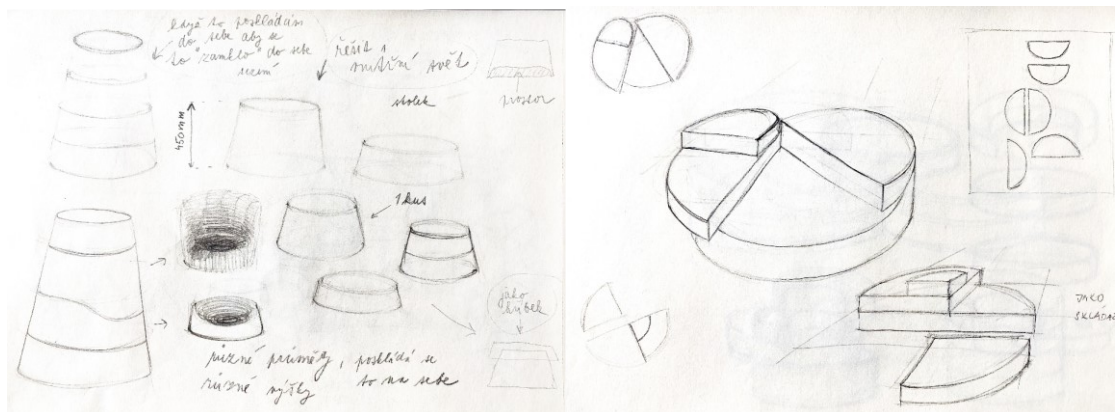 když to poskládám
do sebe aby se
to "zamklo" do sebe
řešit s
vnitřní svět
stolek
prostor
450mm
1 kus
jako
různé průměty, poskládá se
různé výšky to na sebe
JAKO